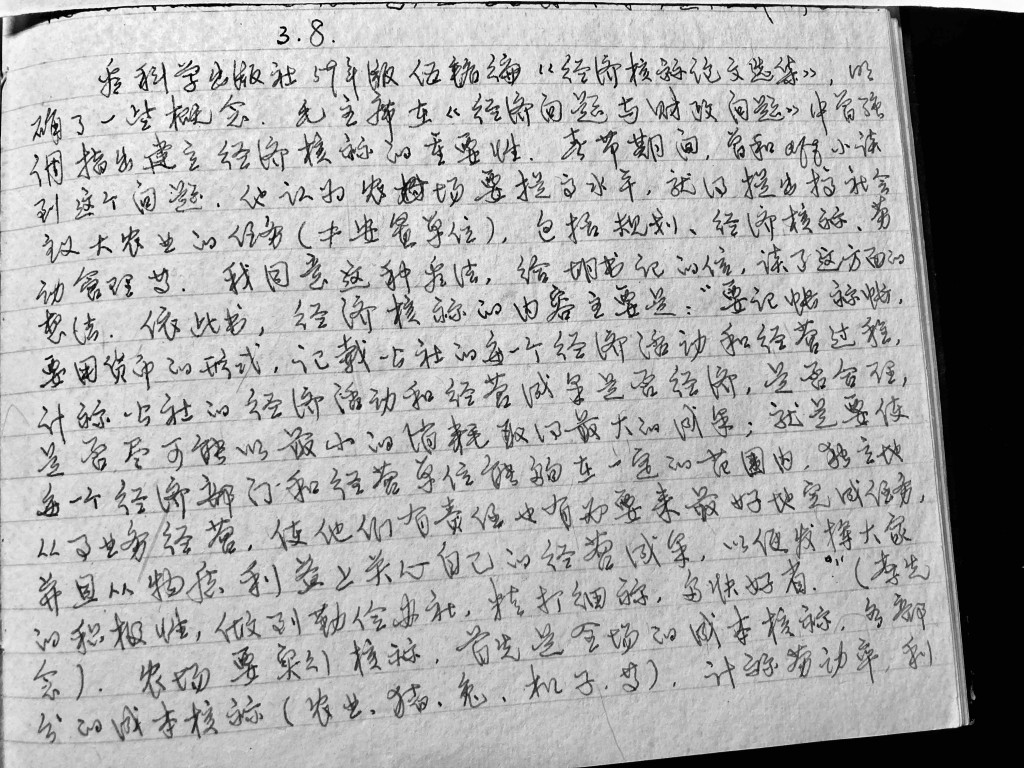 3.8.
看科学出版社59年版伍纯编《经济核算论文选集》，明
确了一些概念。毛主席在《经济问题与财政问题》中曾强
调指出建立经济核算的重要性。春节期间，曾和 小谈
到这个问题。他认为农场要提高水平，就得提出搞社会
主义大农业的任务（ 单位），包括规划、经济核算、劳
动管理等。我同意这种看法，给胡书记的信，谈了这方面的
想法。依此书，经济核算的内容主要是：“要记帐算帐，
要用货币的形式，记载 社的每一个经济活动和经营过程，
计算 社的经济活动和经营成果是否经济，是否合理，
是否尽可能以最小的消耗取得最大的成果；就是要使
每一个经济部门和经营单位能够在一定的范围内，独立地
从事业务经营，使他们有责任也有必要来最好地完成任务，
并且从物质利益上关心自己的经营成果，以便发挥大家
的积极性，做到勤俭办社，精打细算，多快好省。”（李先
念）。农场要实行核算，首先是全场的成本核算，各部
分的成本核算（农业、猪、兔、机子、等），计算劳动率，利